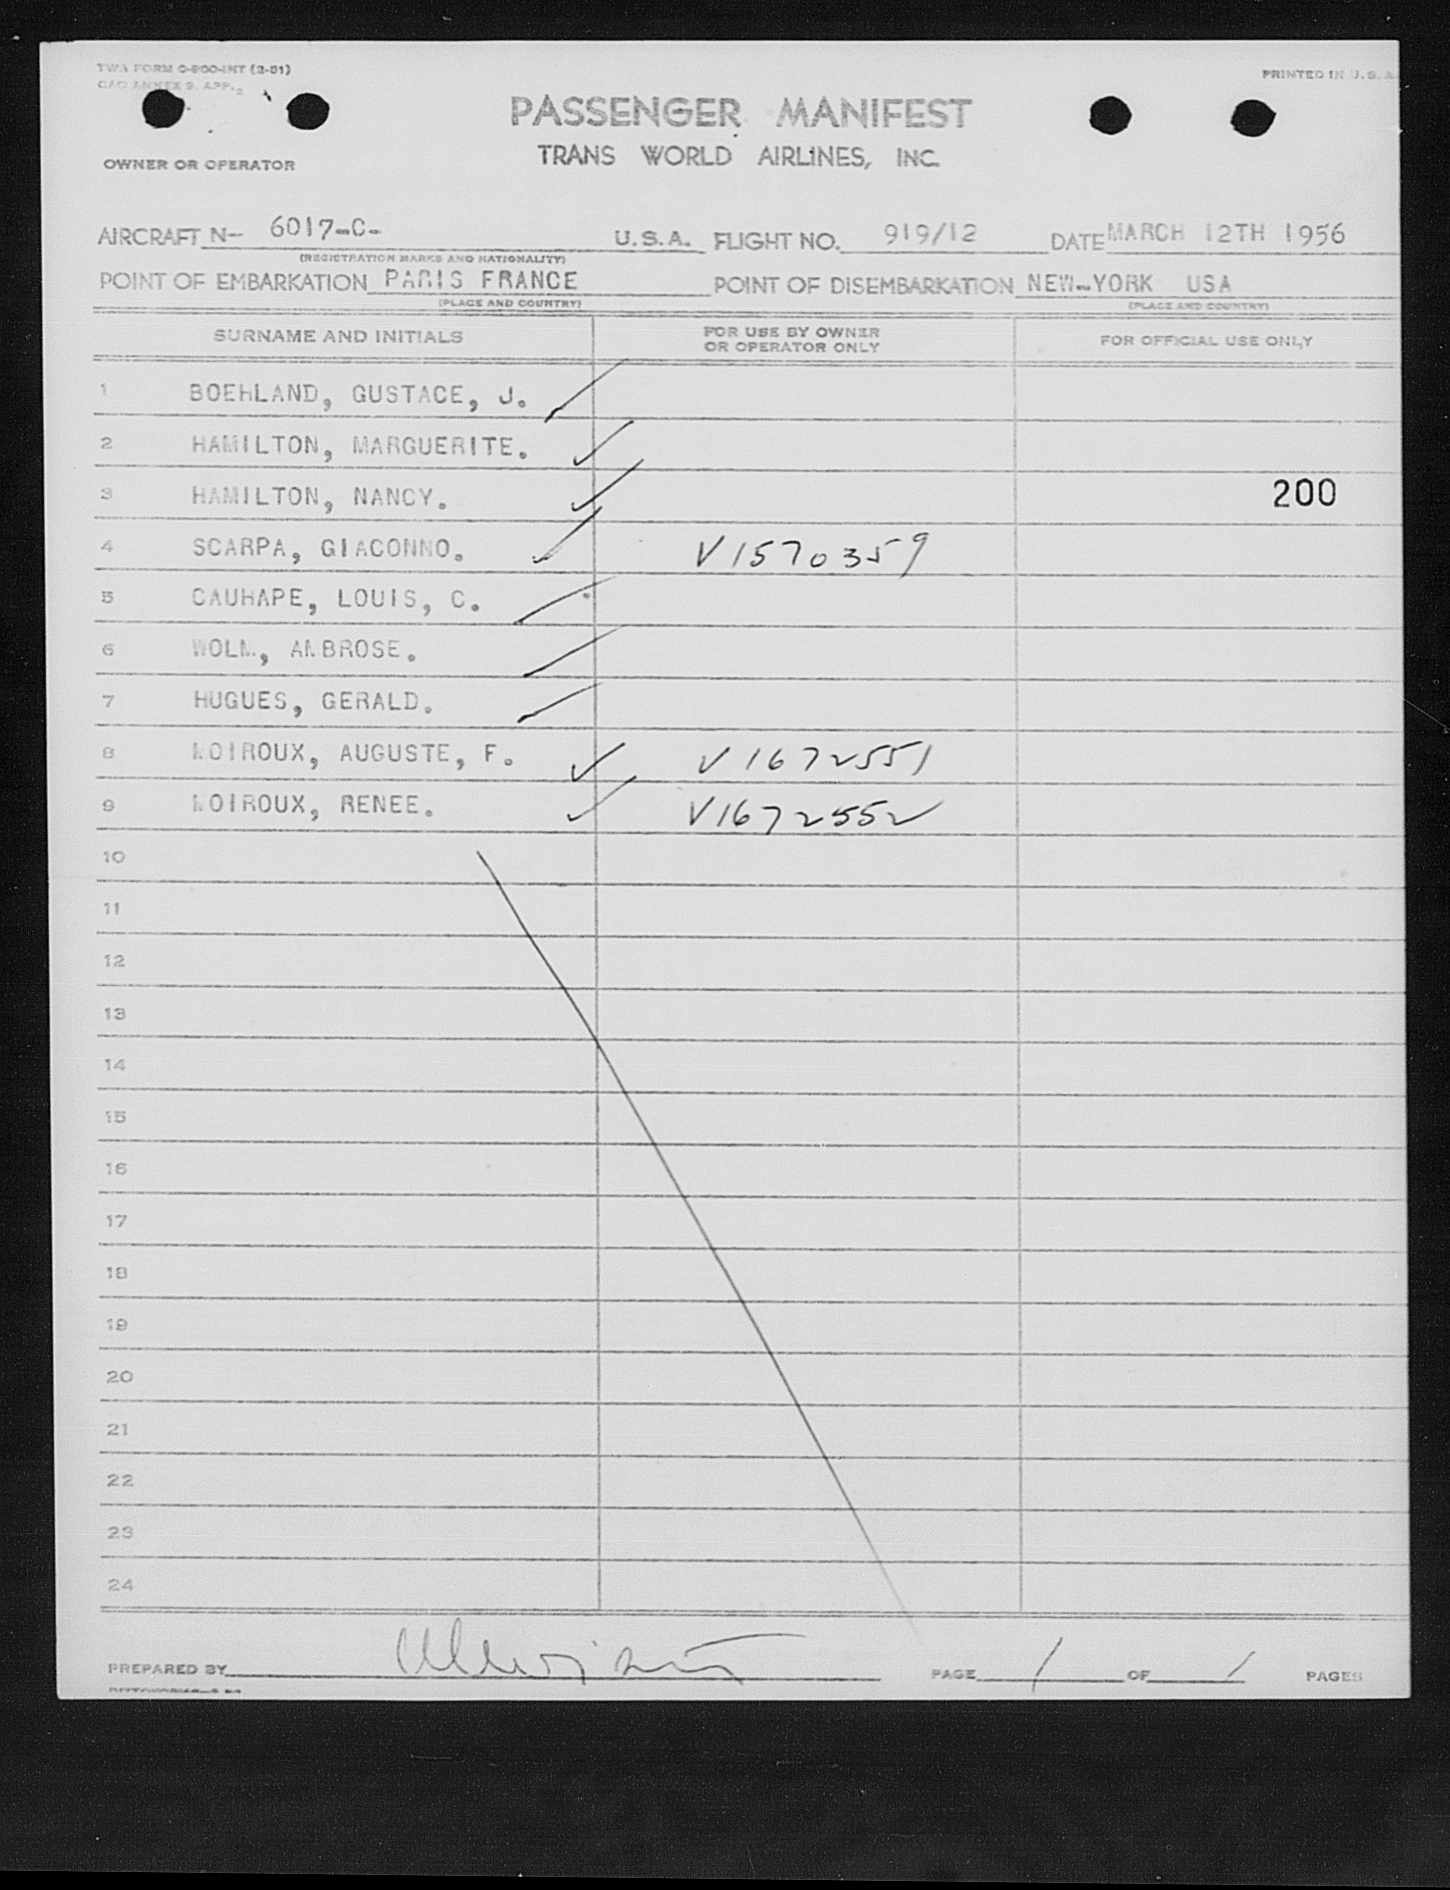 TWA FORM O-900-INT (2-51)
PRINTED IN U.S.A.
PASSENGER MANIFEST
TRANS WORLD AIRLINES, INC.
OWNER OR OPERATOR
AIRCRAFT N- 6017-C- U.S.A. FLIGHT NO. 919/12 DATE MARCH 12TH 1956
(REGISTRATION MARKS AND NATIONALITY)
POINT OF EMBARKATION PARIS FRANCE POINT OF DISEMBARKATION NEW-YORK USA
(PLACE AND COUNTRY) (PLACE AND COUNTRY)
SURNAME AND INITIALS FOR USE BY OWNER OR OPERATOR ONLY FOR OFFICIAL USE ONLY
1 BOEHLAND, GUSTACE, J.
2 HAMILTON, MARGUERITE.
3 HAMILTON, NANCY. 200
4 SCARPA, GIACONNO. V1570359
5 CAUHAPE, LOUIS, C.
6 WOLM, AMBROSE.
7 HUGUES, GERALD.
8 MOIROUX, AUGUSTE, F. V1672551
9 MOIROUX, RENEE. V1672552
10
11
12
13
14
15
16
17
18
19
20
21
22
23
24
PREPARED BY PAGE 1 OF 1 PAGES